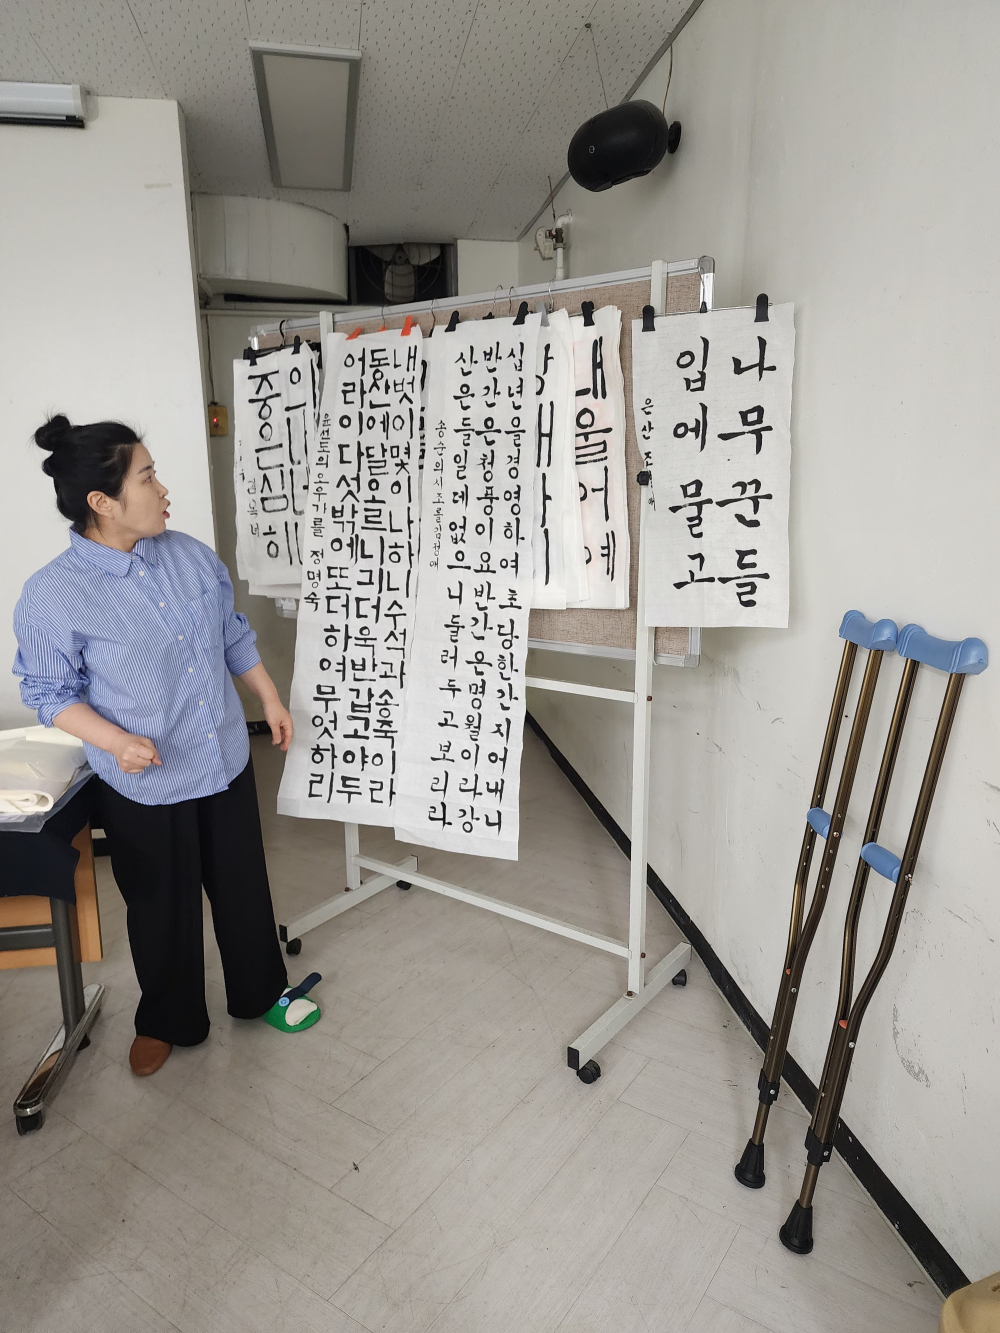 나무꾼들
입에물고
은산
내울어예
십년을경영하여초당한간지어내니
반간은청풍이요반간은명월이라강
산은들일데없으니들러두고보리라
송순의시조를
내벗이몇이나하니수석과송죽이라
동산에달오르니긔더욱반갑고야두
어라이다섯밖에또더하여무엇하리
윤선도의오우가를 정명숙
중은심해